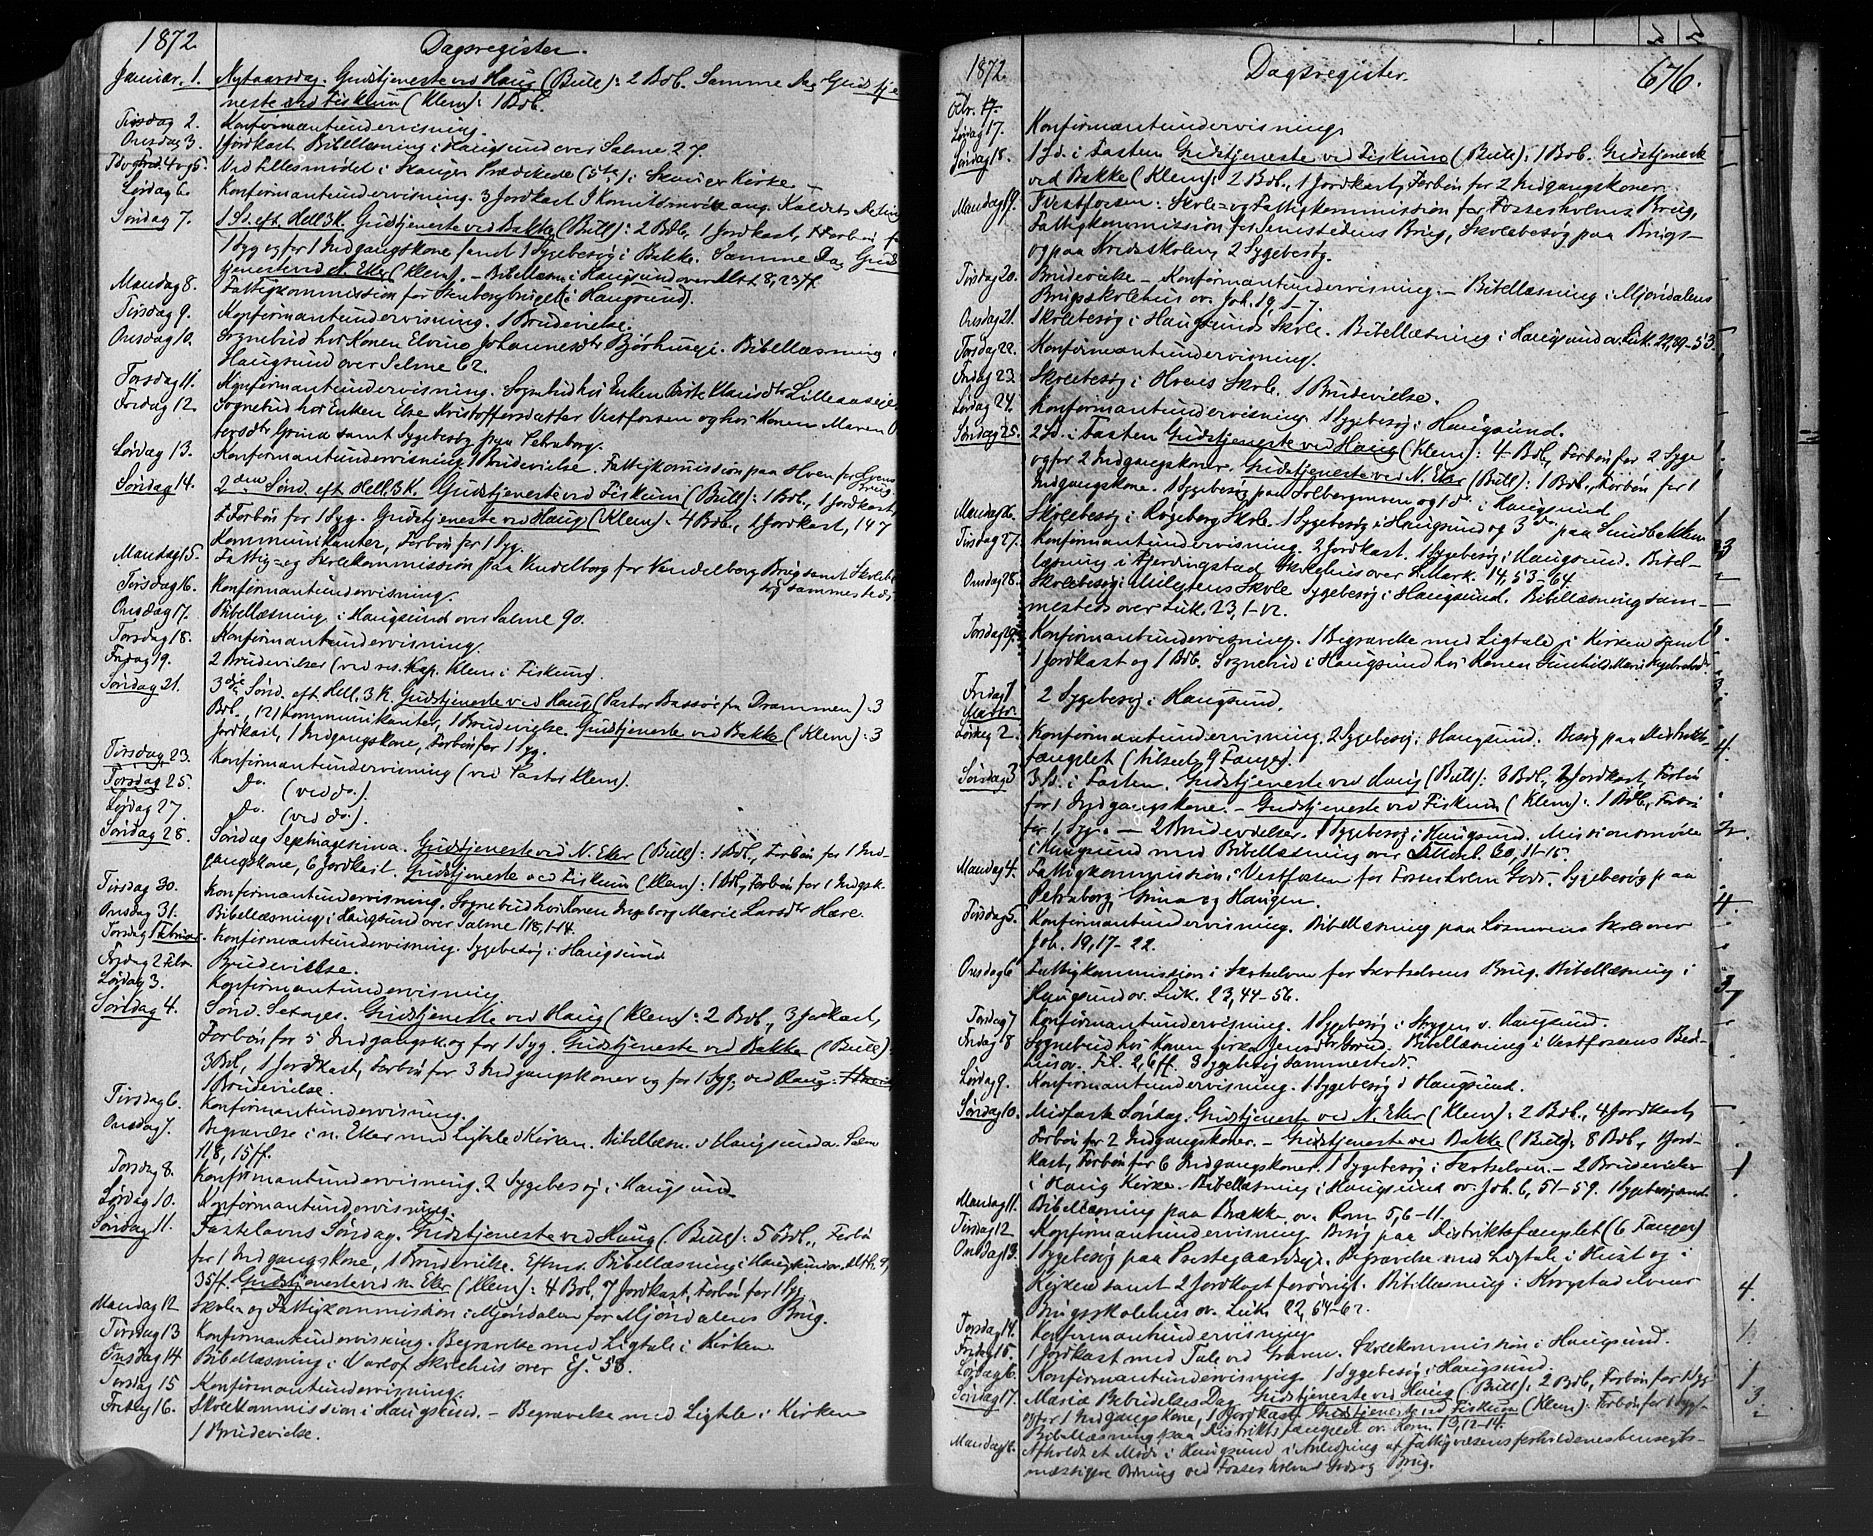 1872.
Dagsregister.
Januar. 1. Nytaarsdag. Gudstjeneste ved Haug (Bull): 2 Bdb. Samme Da Gudstje
neste ved Fiskum (Klem): 1 Bdb.
Tirsdag 2. Konfirmantundervisning.
Onsdag 3. 1 Jordkast. Bibellæsning i Haugsund over Salme 27.
4 og 5. Ved Fællesmødet i Skauger Prædikede (5te) i Skauger Kirke.
Lørdag 6. Konfirmantundervisning. 3 Jordkast. I Komitemøde ang. Kaldets
Søndag 7. 1 Sd. eft. Hell. 3 K. Gudstjeneste ved Bakke (Bull): 2 Bdb, 1 Jordkast, Forbøn f
1 Syg og for 1 Indgangskone samt 1 Sygebesøg i Bakke. Samme Dag Guds
tjeneste ved N. Eker (Klem). – Bibellæsn. i Haugsund over Mt 8, 23 ff.
Mandag 8. Fattigkommission for Stenbergbruget (i Haugsund).
Tirsdag 9. Konfirmantundervisning. 1 Brudevielse.
Onsdag 10. Sognebud hos Konen Elvine Johannesdtr Bjørhuseje. Bibellæsning i
Haugsund over Salme 62.
Torsdag 11. Konfirmantundervisning. Sognebud hos Enken Birte Clausdtr Lilleaaseje
Fredag 12. Sognebud hos Enken Else Kristoffersdatter Vestfossen og hos Konen Maren
dtr Gruua samt Sygebesøg paa Petraborg.
Lørdag 13. Konfirmantundervisning 1 Brudevielse. Fattigkommission paa Hven for Hvens
Brug.
Søndag 14. 2den Sønd. eft. Hell. 3 K. Gudstjeneste ved Fiskum (Bull): 1 Bdb, 1 Jordkast,
Forbøn for 1 Syg. Gudstjeneste ved Haug (Klem): 4 Bdb., 1 Jordkast, 147
Kommunikanter, Forbøn for 1 Syg.
Mandag 15. Fattig= og Skolekommission paa Vendelborg for Vendelborg Brug samt Skolebe
søg sammesteds.
Tirsdag 16. Konfirmantundervisning.
Onsdag 17. Bibellæsning i Haugsund over Salme 90.
Torsdag 18. Konfirmantundervisning.
Fredag 19. 2 Brudevielser (ved res. Kap. Klem i Fiskum).
Søndag 21. 3die Sønd. eft. Hell. 3 K. Gudstjeneste ved Haug (Pastor Bassøe fra Drammen): 3
Bdb., 121 Kommunikanter, 1 Brudevielse. Gudstjeneste ved Bakke (Klem): 3
Jordkast, 1 Indgangskone, Forbøn for 1 Syg.
Tirsdag 23. Konfirmantundervisning (ved Pastor Klem).
Torsdag 25. Do. (ved do.).
Lørdag 27. Do. (ved do.).
Søndag 28. Søndag Septuagesima. Gudstjeneste ved N. Eker (Bull): 1 Bdb., Forbøn for 1 Ind-
gangskone, 6 Jordkast. Gudstjeneste ved Fiskum (Klem): 1 Bdb, Forbøn for 1 Indgsk.
Tirsdag 30. Konfirmantundervisning. Sognebud hos Konen Ingeborg Marie Larsdtr Hære.
Onsdag 31. Bibellæsning i Haugsund over Salme 118, 1-14.
Torsdag 1 Februar. Konfirmantundervisning. Sygebesøg i Haugsund
Fredag 2 Febr. Brudevielse.
Lørdag 3. Konfirmantundervisning.
Søndag 4. Sønd. Sexages. Gudstjeneste ved Haug (Klem): 2 Bdb., 3 Jordkast,
Forbøn for 5 Indgangsk. og for 1 Syg. Gudstjeneste ved Bakke (Bull)
3 Bdb, 1 Jordkast, Forbøn for 3 Indgangskoner og for 1 Syg; ved Haug
1 Brudevielse.
Tirsdag 6. Konfirmantundervisning.
Onsdag 7. Begravelse i n. Eker med Ligtale i Kirken. Bibellæsn. i Haugsund ov. Salm
118, 15 ff.
Torsdag 8. Konfirmantundervisning. 2 Sygebesøg i Haugsund
Lørdag 10. Konfirmantundervisning.
Søndag 11. Fastelavns Søndag. Gudstjeneste ved Haug (Bull): 5 Bdb., Forbø
for 1 Indgangskone, 1 Brudevielse. Efterm. Bibellæsning i Haugsund ov. Mtth. 9,
35 ff. Gudstjeneste ved n. Eker (Klem): 4 Bdb, 7 Jordkast, Forbøn for 1 Syg.
Mandag 12 Skole og Fattigkommission i Mjøndalen for Mjøndalens Brug.
Tirsdag 13 Konfirmantundervisning. Begravelse med Ligtale i Kirken
Onsdag 14 Bibellæsning i Varlof Skolehus over Es. 53.
Torsdag 15 Konfirmantundervisning.
Fredag 16. Skolekommission i Haugsund. – Begravelse med Ligtale i Kirken
1 Brudevielse.
1872.
Dagsregister.
676.
Lørdag 17. Konfirmantundervisning.
Søndag 18. 1 Sd. i Fasten Gudstjeneste ved Fiskum (Bull): 1 Bdb. Gudstjeneste
ved Bakke (Klem): 2 Bdb., 1 Jordkast, Forbøn for 2 Indgangskoner.
Mandag 19. I Vestfossen: Skole= og Fattigkommission for Fossesholms Brug,
Fattigkommission for Brug, Skolebesøg paa Brugs-
og paa Kredsskolen, 2 Sygebesøg.
Tirsdag 20. Brudevielse – Konfirmantundervisning. – Bibellæsning i Mjøndalens
Brugsskolehus ov. Joh. 19, 1-7.
Onsdag 21. Skolebesøg i Haugsunds Skole. Bibellæsning i Haugsund ov. Luk. 22, 39-53.
Torsdag 22. Konfirmantundervisning.
Fredag 23. Skolebesøg i Hvens Skole. 1 Brudevielse.
Lørdag 24. Konfirmantundervisning. 1 Sygebesøg i Haugsund.
Søndag 25. 2 Sd. i Fasten Gudstjeneste ved Haug (Klem): 4 Bdb, Forbøn for 2 Syge
og for 2 Indgangskoner. Gudstjeneste ved N. Eker (Bull): 1 Bdb., Forbøn for 1
Indgangskone. 1 Sygebesøg paa Solbergmoen og 1 do i Haugsund
Mandag 26. Skolebesøg i Skole. 1 Sygebesøg i Haugsund og 3 do paa Sundbakken
Tirsdag 27. Konfirmantundervisning. 2 Jordkast. 1 Sygebesøg i Haugsund. Bibel-
læsning i Hjerdingstad Skolehus over Mark. 14, 53-64.
Onsdag 28. Skolebesøg i Skole Sygebesøg i Haugsund. Bibellæsning sam-
mesteds over Luk. 23, 1-12.
Torsdag 29. Konfirmantundervisning. 1 Begravelse med Ligtale i Kirken samt
1 Jordkast og 1 Bdb. Sognebud i Haugsund hos Konen Gunhild Marie
Fredag 1 Marts. 2 Sygebesøg i Haugsund.
Lørdag 2. Konfirmantundervisning. 2 Sygebesøg i Haugsund. Besøg paa Distrikts-
fængslet (tilsede 9 Fanger).
Søndag 3. 3 Sd. i Fasten. Gudstjeneste ved Haug (Bull): 3 Bdb., 2 Jordkast, Forbøn
for 1 Indgangskone. – Gudstjeneste ved Fiskum (Klem): 1 Bdb., Forbøn
for 1 Syg. – 2 Brudevielser. 1 Sygebesøg i Haugsund. Missionsmøde
i Haugsund med Bibellæsning over 30, 11-15.
Mandag 4. Fattigkommission i Vestfossen for Fossesholm Gods. Sygebesøg paa
Petraborg, Gruua og Haugen.
Tirsdag 5. Konfirmantundervisning. Bibellæsning paa Løsmoens Skole over
Joh. 19, 17-22.
Onsdag 6 Fattigkommission i Skotselven for Skotselvens Brug. Bibellæsning i
Haugsund ov. Luk. 23, 44-56.
Torsdag 7 Konfirmantundervisning. 1 Sygebesøg i Stryken v. Haugsund.
Fredag 8 Sognebud hos Konen Jensdtr. Bibellæsning i Vestfossens Bed-
hus ov. Fil. 2, 6 ff. 3 Sygebesøg sammesteds.
Lørdag 9. Konfirmantundervisning. 1 Sygebesøg i Haugsund.
Søndag 10. Midfaste Søndag. Gudstjeneste ved N. Eker (Klem): 2 Bdb., 4 Jordkast,
Forbøn for 2 Indgangskoner. – Gudstjeneste ved Bakke (Bull): 8 Bdb., 1 Jord-
kast, Forbøn for 6 Indgangskoner. 1 Sygebesøg i Skotselven. – 2 Brudevielser
i Haug Kirke. Bibellæsning i Haugsund ov. Joh. 6, 51-59. 1 Sygebesøg
Mandag 11. Bibellæsning paa Brække ov. Rom. 5, 6-11.
Tirsdag 12 Konfirmantundervisning. Besøg paa Distriktsfængslet (6 Fanger)
Onsdag 13. 1 Sygebesøg paa Prestegaardseje. Begravelse med Ligtale i Huset og i
Kirken samt 2 Jordkast forøvrigt. Bibellæsning i Krogstadelvens
Brugsskolehus ov. Luk. 22, 54-62.
Torsdag 14. Konfirmantundervisning
Fredag 15 1 Jordkast med Tale ved Graven. Skolekommission i Haugsund.
Lørdag 16. Konfirmantundervisning. 1 Sygebesøg i Haugsund.
Søndag 17. Mariæ Bebudelses Dag. Gudstjeneste ved Haug (Bull): 2 Bdb., Forbøn for 1 Syg
og for 1 Indgangskone, 1 Jordkast. Gudstjeneste ved Fiskum (Klem): Forbøn for 1 Syg.
Bibellæsning paa Distriktsfængslet ov. Rom. 13, 12-14.
Mandag 18. Afholdt et Møde i Haugsund i Anledning af Fattigvæsensforholdenes hensigts-
mæssigere Ordning ved Fossesholms Gods og Brug.